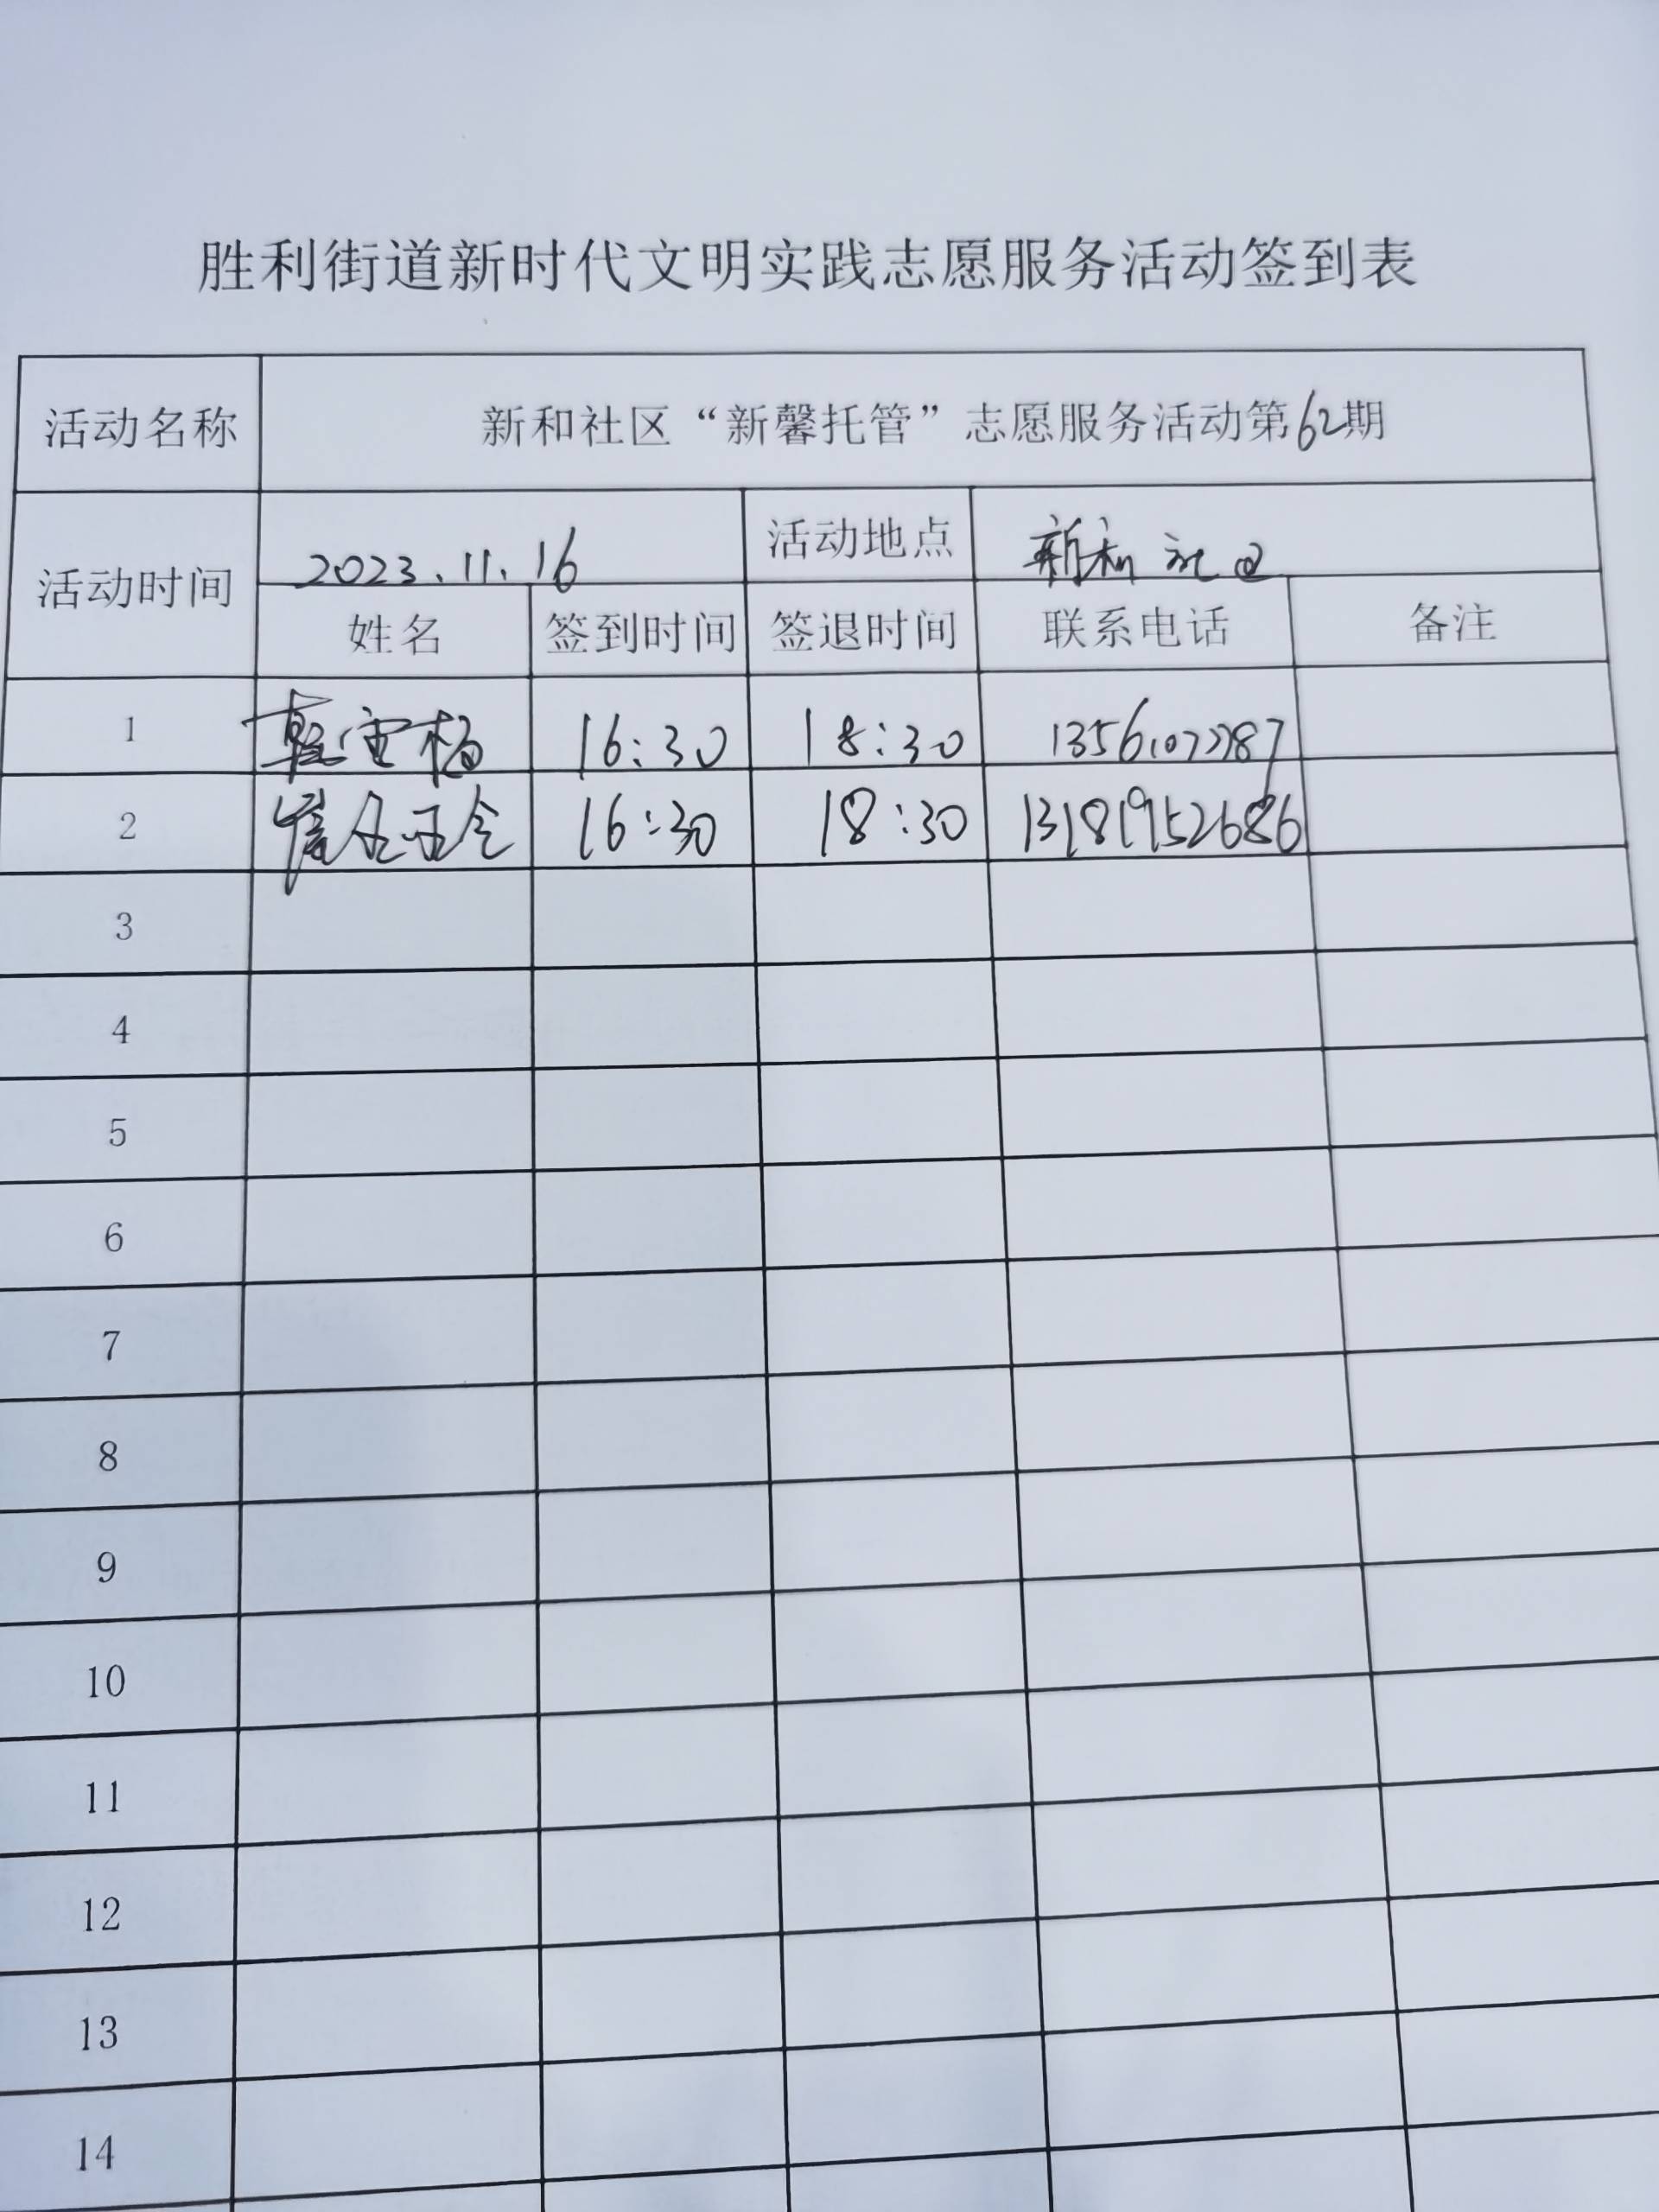 胜利街道新时代文明实践志愿服务活动签到表
活动名称 新和社区“新馨托管”志愿服务活动第62期
活动时间 2023.11.16 活动地点 新和社区
姓名 签到时间 签退时间 联系电话 备注
1 16:30 18:30
2 16:30 18:30 13181952686
3
4
5
6
7
8
9
10
11
12
13
14